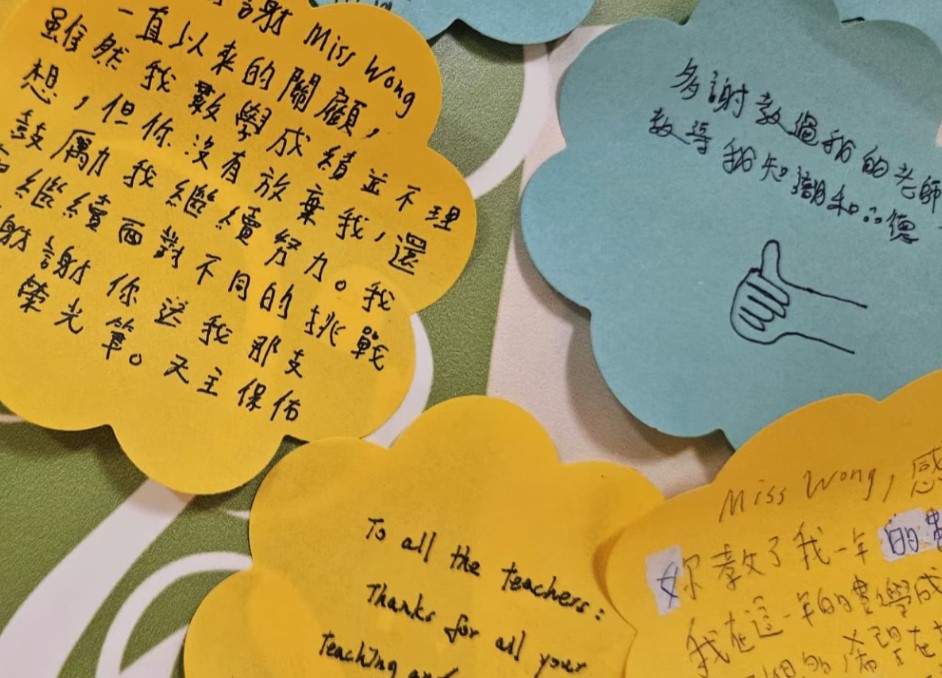 謝 Miss Wong
一直以來的關顧，
雖然我數學成績並不理
想，但你沒有放棄我，還
鼓勵我繼續努力。我
繼續面對不同的挑戰
謝謝你送我那支
螢光筆。天主保佑
多謝教過我的老師
教導我知識和品德
To all the teachers:
Thanks for all your
Teaching and
Miss Wong, 感
你教了我一年的數
我在這一年的數學成
希望在